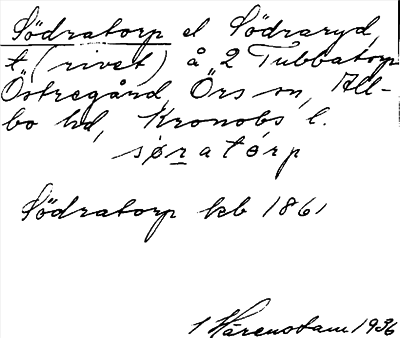 Södratorp el Södraryd,
t (rivet) å 2 Tubbatorp
Östregård, Örs sn, All-
bo hd, Kronobs l.
søratórp
Södratorp kb 1861
1 Hårenstam 1936